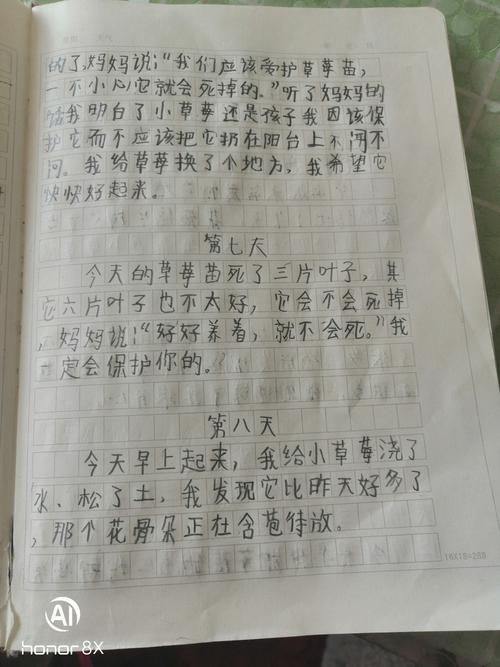 的了,妈妈说:“我们应该爱护草莓苗,
一不小心它就会死掉的。”听了妈妈的
话我明白了小草莓还是孩子我因该保
护它而不应该把它扔在阳台上不闻不
问。我给草莓换了个地方,我希望它
快快好起来。
第七天
今天的草莓苗死了三片叶子,其
它六片叶子也不太好,它会不会死掉
,妈妈说:“好好养着,就不会死。”我
一定会保护你的。
第八天
今天早上起来,我给小草莓浇了
水、松了土,我发现它比昨天好多了
,那个花骨朵正在含苞待放。
16X18=288
AI
honor 8X